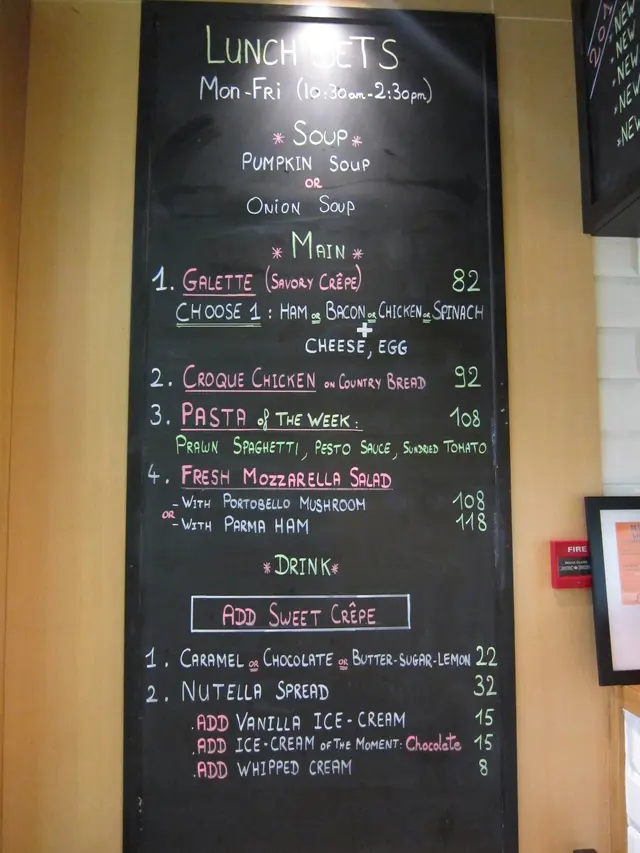 LUNCH SETS
MON-FRI (10:30am-2:30pm)
* SOUP *
PUMPKIN SOUP
OR
ONION SOUP
* MAIN *
1. GALETTE (SAVORY CRÊPE) 82
CHOOSE 1 : HAM OR BACON OR CHICKEN OR SPINACH
+
CHEESE, EGG
2. CROQUE CHICKEN ON COUNTRY BREAD 92
3. PASTA of THE WEEK: 108
PRAWN SPAGHETTI, PESTO SAUCE, SUNDRIED TOMATO
4. FRESH MOZZARELLA SALAD
- WITH PORTOBELLO MUSHROOM 108
OR
- WITH PARMA HAM 118
* DRINK *
ADD SWEET CRÊPE
1. CARAMEL OR CHOCOLATE OR BUTTER-SUGAR-LEMON 22
2. NUTELLA SPREAD 32
.ADD VANILLA ICE-CREAM 15
.ADD ICE-CREAM OF THE MOMENT: Chocolate 15
.ADD WHIPPED CREAM 8
NEW
NEW
NEW
NEW
NEW
FIRE